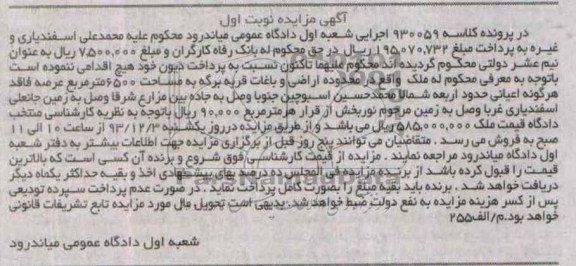 آگهی مزایده نوبت اول
در پرونده کلاسه ۹۳۰۰۵۹ اجرایی شعبه اول دادگاه عمومی میاندرود محکوم علیه محمدعلی اسفندیاری و
غیره به پرداخت مبلغ ۱۹۵،۰۷۰،۷۳۲ ریال در حق محکوم له بانک رفاه کارگران و مبلغ ۷،۵۰۰،۰۰۰ ریال به عنوان
نیم عشر دولتی محکوم گردیده اند محکوم علیهما تاکنون نسبت به پرداخت دیون خود هیچ اقدامی ننموده است
باتوجه به معرفی محکوم له ملک واقع در محدوده اراضی و باغات قریه برگه به مساحت ۶۵۰۰مترمربع عرصه فاقد
هرگونه اعیانی حدود اربعه شمالا محمدحسین اسبوچین جنوبا وصل به جاده بین مزارع شرقا وصل به زمین جانعلی
اسفندیاری غربا وصل به زمین مرحوم نوربخش از قرار هرمترمربع ۹۰،۰۰۰ ریال باتوجه به نظریه کارشناسی منتخب
دادگاه قیمت ملک ۵۸۵،۰۰۰،۰۰۰ ریال می باشد و از طریق مزایده درروز یکشنبه ۹۳/۱۲/۳ از ساعت ۱۰ الی ۱۱
صبح به فروش می رسد . متقاضیان می توانند پنج روز قبل از برگزاری مزایده جهت اطلاعات بیشتر به دفتر شعبه
اول دادگاه میاندرود مراجعه نمایند . مزایده از قیمت کارشناسی فوق شروع و برنده آن کسی است که بالاترین
قیمت را قبول کرده باشد از برنده مزایده فی المجلس ده درصد بهای پیشنهادی اخذ و بقیه حداکثر یکماه دیگر
دریافت خواهد شد . برنده باید بقیه مبلغ را بصورت کامل پرداخت نماید . در صورت عدم پرداخت سپرده تودیعی
پس از کسر هزینه مزایده به نفع دولت ضبط خواهد شد. بدیهی است تحویل مال مورد مزایده تابع تشریفات قانونی
خواهد بود.م/الف۲۵۵
شعبه اول دادگاه عمومی میاندرود